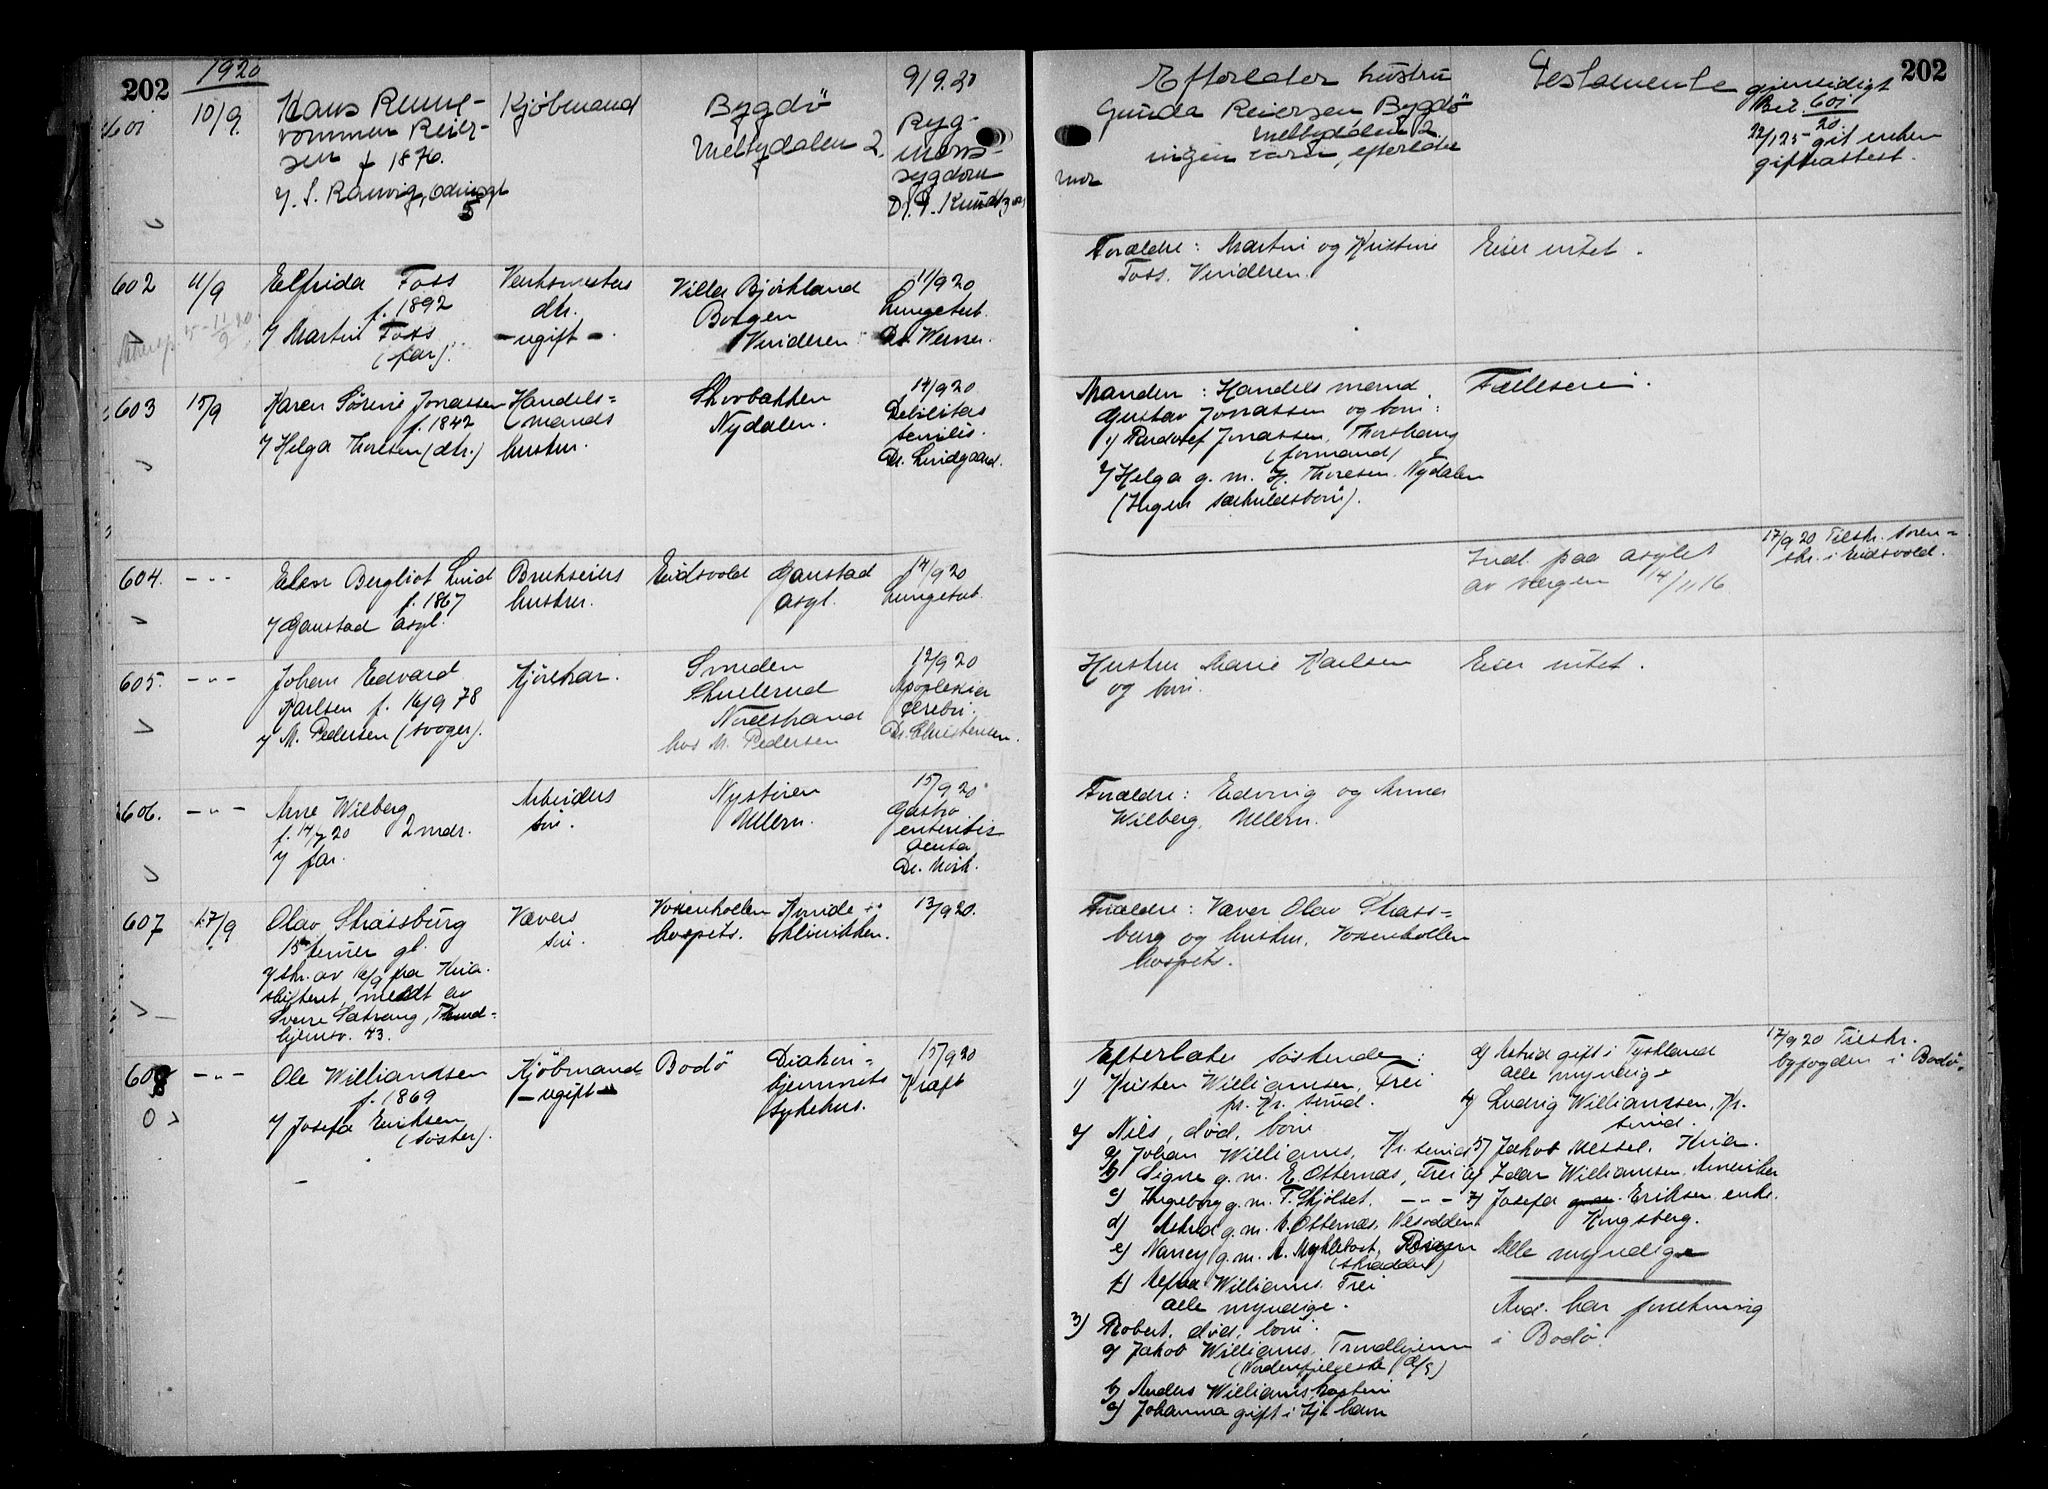 202
1920
601
10/9
Hans Renne-
vommen Reier-
sen f 1876.
Kjøbmand
Bygdö
Melbydalen 2.
9/9.20
Ryg-
marvs-
sygdom
602
11/9
Elfrida Foss
f. 1892
v/ Martin Foss
(far).
Verksmesters
dtr.
- ugift -.
Villa Bjørkland
Borgen
Vinderen
11/9 20
Lungetub.
Dr. Werner.
603
15/9
Karen Sørine Jonassen
f. 1842
v/ Helga Thoresen (dtr.)
Handels=
mands
hustru.
Skovbakken
Nydalen.
14/9 20
Debilitas
senilis.
Dr. Lindgaard.
604.
- " -
Elen Bergliot Lind
f. 1867
v/ Gaustad asyl.
Brukseiers
hustru.
Eidsvold
Gaustad
asyl.
14/9 20
Lungetub.
605.
- " -
Johan Edvard
Karlsen f. 16/9 78
v/ M. Pedersen (svoger).
Kjørekar.
Smeden
Skullerud
Nordstrand
hos M. Pedersen
12/9 20
Apoplexia
cerebri.
Dr. Christensen.
606.
- " -
Arne Wilberg
f. 14/7 20 2 mdr.
v/ far.
Arbeiders
søn.
Nystuen
Ullern.
15/9 20
Gastro
enteritis
acuta
Dr. Mørk.
607
17/9
Olav Strassburg
15 timer gl.
v/ skr. av 16/9 fra Kria.
skifteret, meldt av
Sverre Sætrang, Trond-
hjemsv. 43.
Vævers
søn.
Voxenkollen
hospits.
Kvinde
klinikken.
13/9 20.
608
- " -
Ole Williamsen
f. 1869
v/ Josefa Eriksen
(søster).
Kjøbmand
- ugift -
Bodö
Diakon-
hjemmets
sykehus.
15/9 20
Kræft
202
Efterlater hustru
Gunda Reiersen Bygdö
Melbydalen 2.
ingen barn, efterlater
mor
Testamente gjensidigt
Bil. 601/20
22/1 25 git enken
gifteattest.
Forældre: Martin og Kristine
Foss. Vinderen.
Eier intet.
Manden: Handelsmand
Gustav Jonassen og barn:
1) Randulf Jonassen, Thorshaug
(formand)
2) Helga g. m. H. Thoresen. Nydalen
(Ingen særkuldsbarn).
Fælleseie.
Indl. paa asylet
av vergen 14/11 16
17/9 20 Tilskr. soren=
skr. i Eidsvold.
Hustru Marie Karlsen
og barn.
Eier intet.
Forældre: Edvin og Anna
Wilberg, Ullern.
Forældre: Væver Olav Strass=
burg og hustru, Voxenkollen
hospits.
Efterlater søskende:
1) Kristen Williamsen, Frei
pr. Kr. sund.
2) Nils, død, barn
a) Johan Williams, Kr. sund
b) Signe g. m. E. Otternæs, Frei
c) Ingeborg g. m. T. Skjølset. - " -
d) Astrid g. m. A. Otternæs, Nesodden
e) Nancy g. m. A. Myklebost,
(skrædder)
f) Williams. Frei
alle myndige.
3) Robert, død, barn:
a) Jakob Williams, Trondhjem
(Nordenfjeldske d/s)
b) Anders Williams
c) Johanna gift i Kjk. havn
d) Astrid gift i Tyskland
alle myndige
4) Ludvig Williamsen, Kr.
sund.
5) Jakob Messel. Kria.
6) Idar Williamsen. Amerika
7) Josefa g. m. Eriksen enke.
Kongsberg.
Alle myndige
Avd. har forretning
i Bodö.
17/9 20 Tilskr.
byfogden i Bodö.